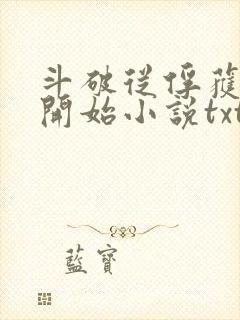 斗破從俘獲
開始小說txt
藍寶